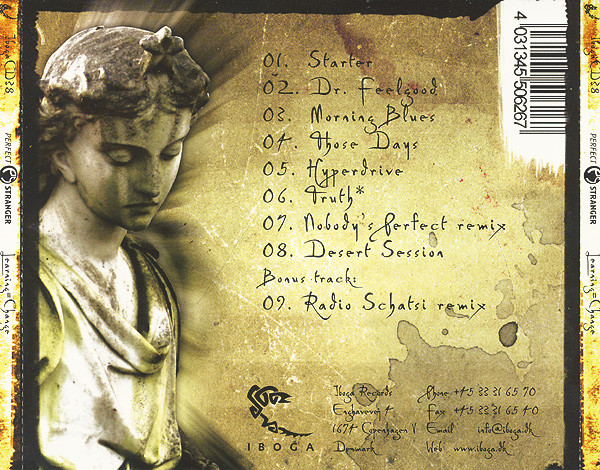 Iboga CD28
PERFECT STRANGER
Learning=Change
01. Starter
02. Dr. Feelgood
03. Morning Blues
04. Those Days
05. Hyperdrive
06. Truth*
07. Nobody's Perfect remix
08. Desert Session
Bonus track:
09. Radio Schatsi remix
4 031345 506267
IBOGA
Iboga Records Phone +45 33 31 65 70
Enghavevej 1 Fax +45 33 31 65 40
1674 Copenhagen V Email info@iboga.dk
Denmark Web www.iboga.dk
Iboga CD28
PERFECT STRANGER
Learning=Change